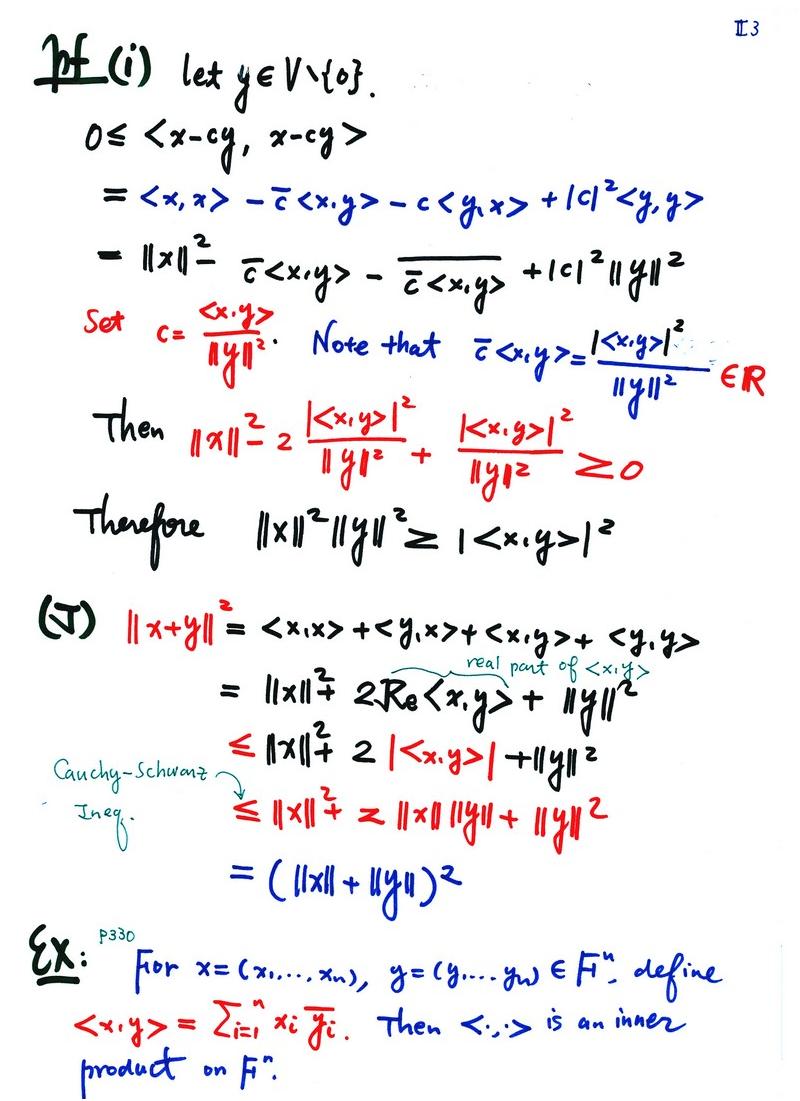 II3
pf (i) let y ∈ V \ {0}.
0 ≤ <x-cy, x-cy>
= <x,x> - c̅<x,y> - c<y,x> + |c|²<y,y>
= ||x||² - c̅<x,y> - \overline{c̅<x,y>} + |c|²||y||²
Set c = <x,y>/||y||². Note that c̅<x,y> = |<x,y>|²/||y||² ∈ ℝ
Then ||x||² - 2 |<x,y>|²/||y||² + |<x,y>|²/||y||² ≥ 0
Therefore ||x||²||y||² ≥ |<x,y>|²
(J) ||x+y||² = <x,x> + <y,x> + <x,y> + <y,y>
real part of <x,y>
= ||x||² + 2Re<x,y> + ||y||²
≤ ||x||² + 2|<x,y>| + ||y||²
Cauchy-Schwarz
Ineq.
≤ ||x||² + 2||x|| ||y|| + ||y||²
= (||x|| + ||y||)²
Ex: P330
For x = (x₁,..., xₙ), y = (y₁...yₙ) ∈ Fⁿ, define
<x,y> = Σᵢ₌₁ⁿ xᵢ y̅ᵢ. Then <·,·> is an inner
product on Fⁿ.